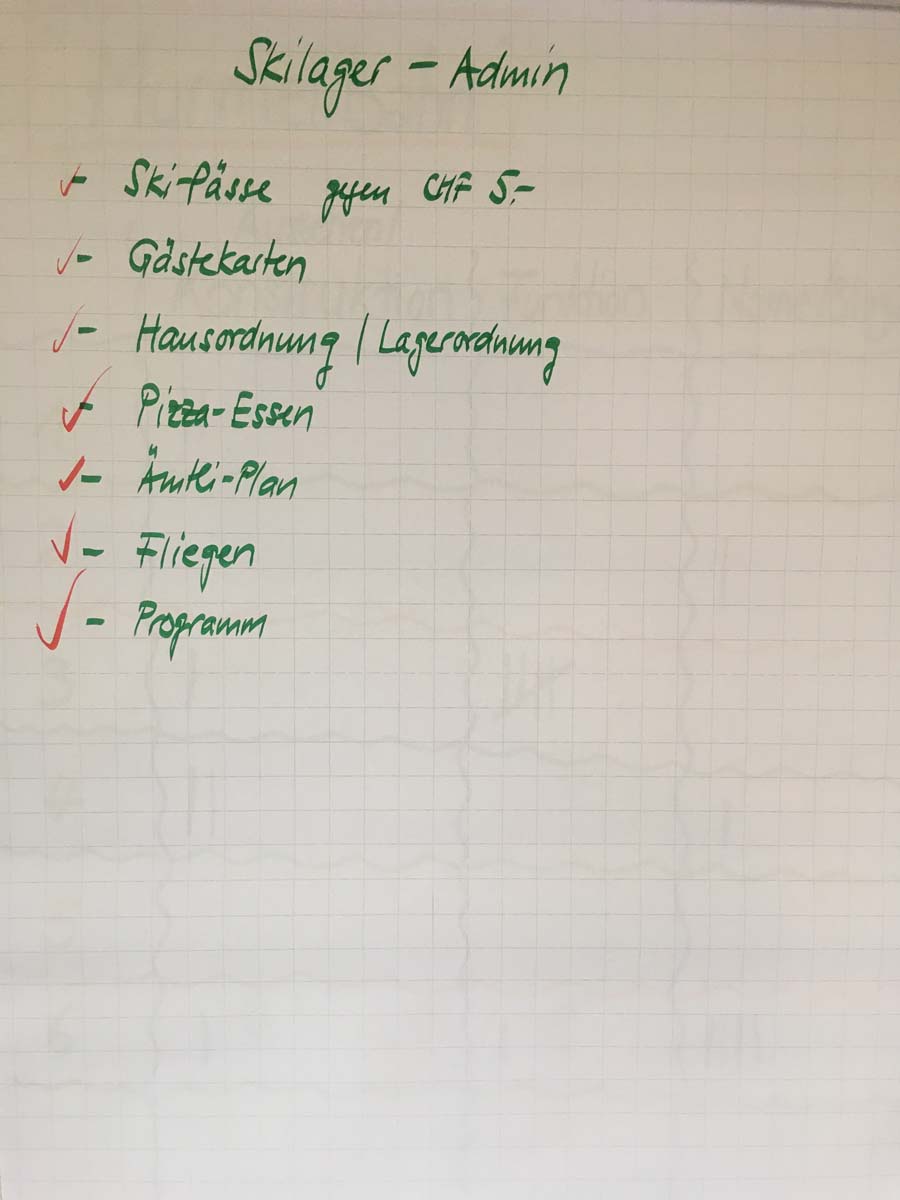 Skilager – Admin
- Ski-Pässe gegen CHF 5.-
- Gästekarten
- Hausordnung / Lagerordnung
- Pizza-Essen
- Ämtli-Plan
- Fliegen
- Programm